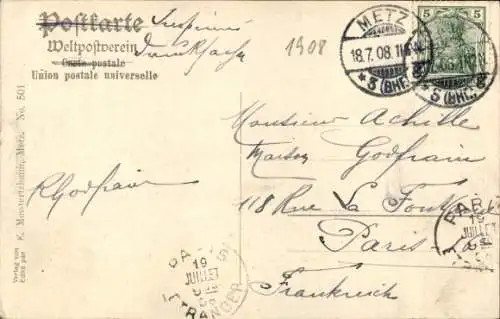 Postkarte
Weltpostverein
Carte postale
Union postale universelle
Imprimé
Drucksache
1908
METZ
18.7.08. 11
* 5 (BHF.) g
5
5
Monsieur Achille
Maison Godfrain
118 Rue La Font
Paris
Frankreich
RGodfrain
Verlag von
Edité par
E. Mensertzhahn, Metz. No. 501
PARIS
19
JUILLET
08
ETRANGER
PARIS
19
JUILLET